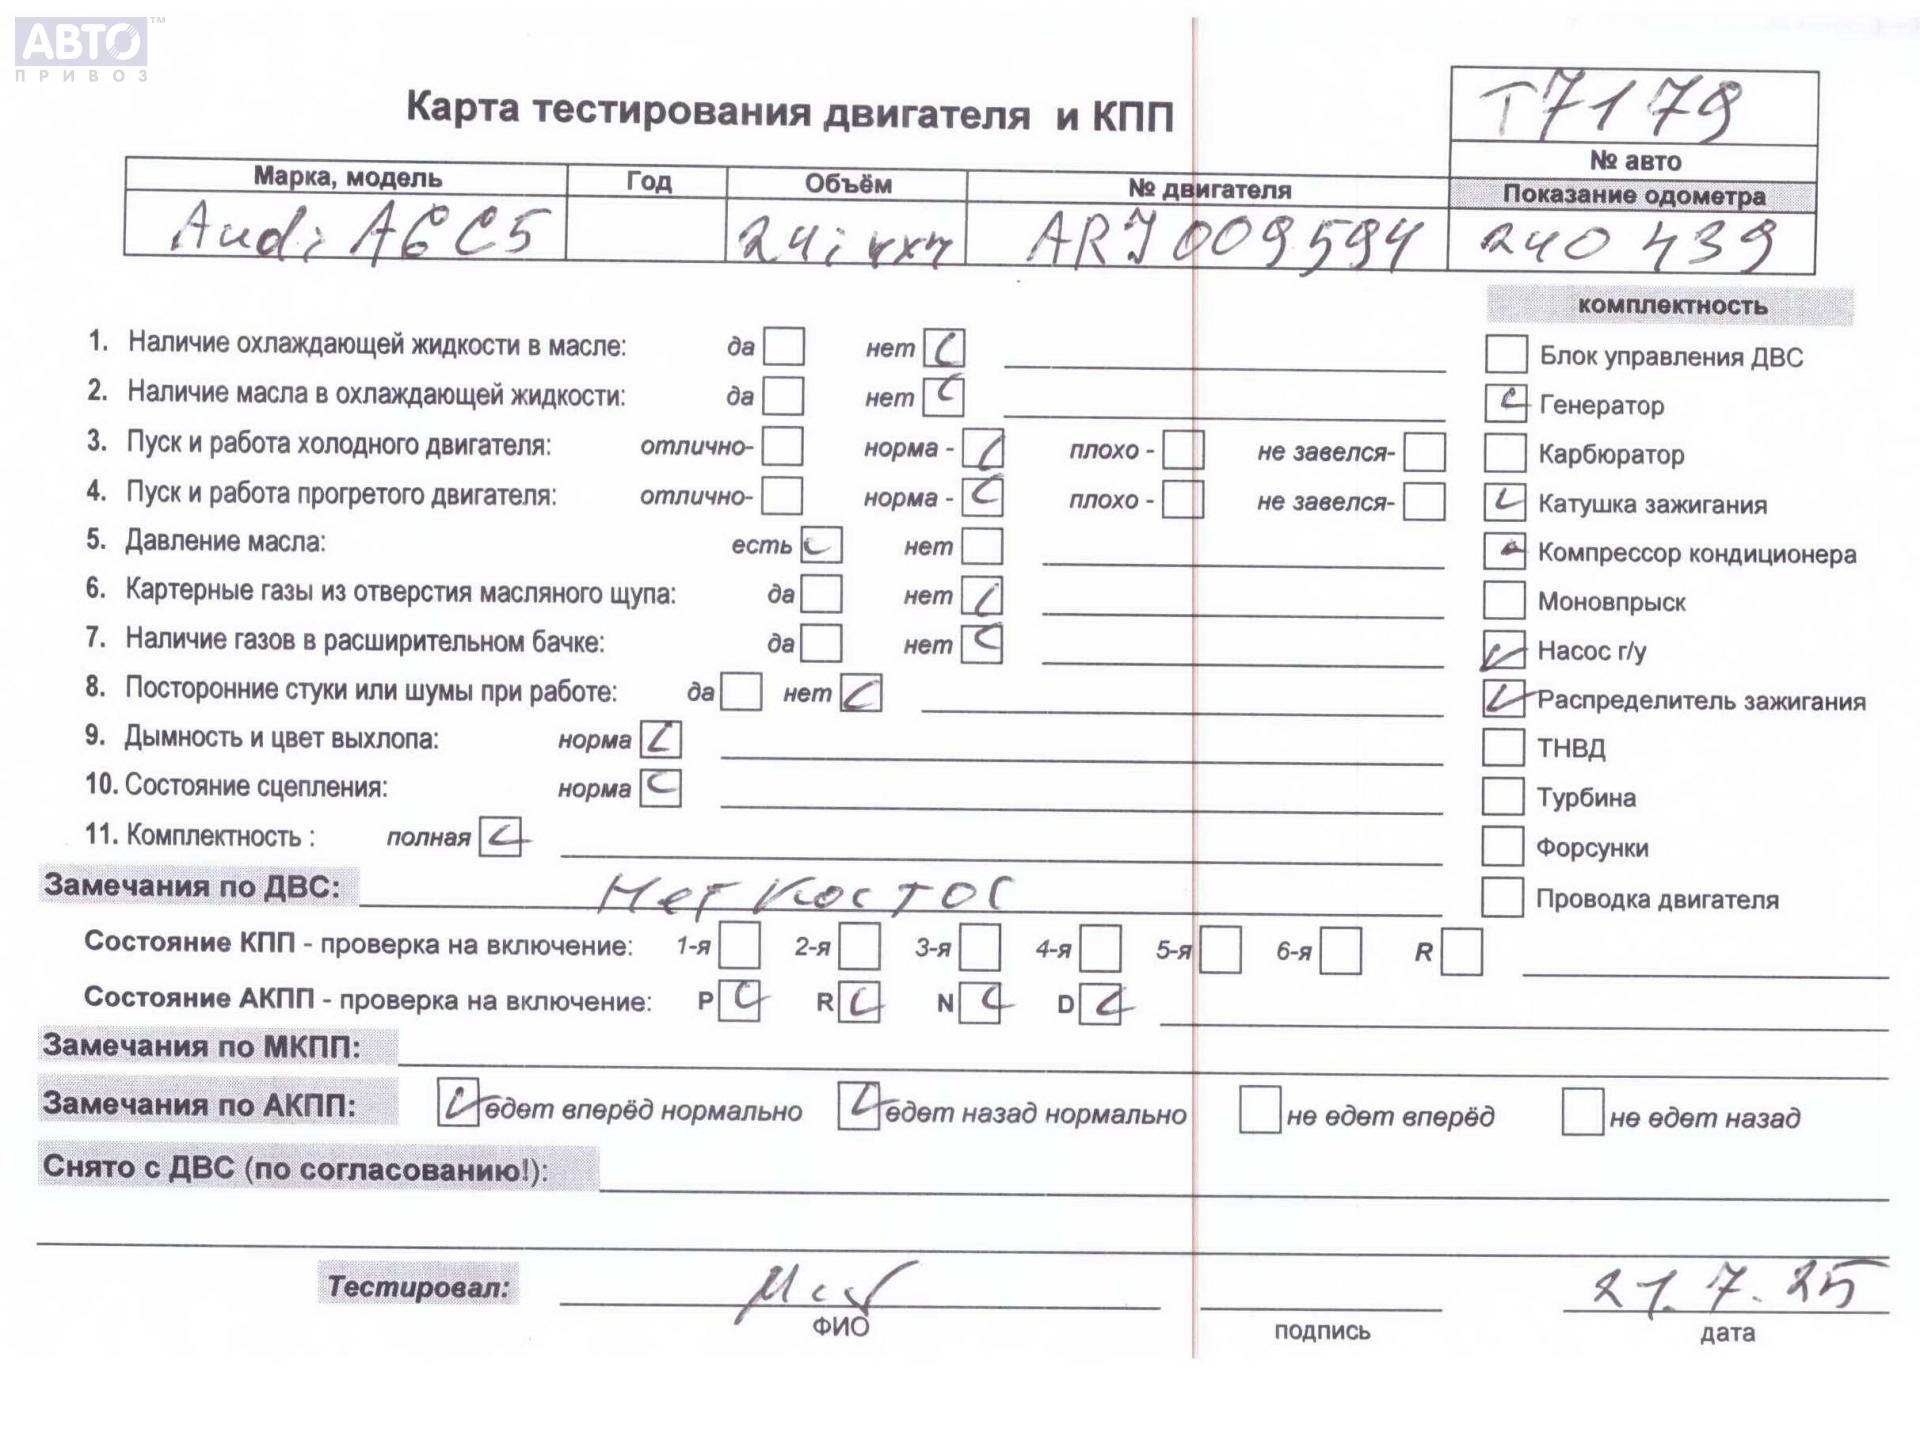 АВТО™
ПРИВОЗ
Карта тестирования двигателя и КПП
Т7179
№ авто
Марка, модель Год Объём № двигателя Показание одометра
Audi A6C5 24i 4x4 ARJ009594 240 439
комплектность
1. Наличие охлаждающей жидкости в масле: да нет
Блок управления ДВС
2. Наличие масла в охлаждающей жидкости: да нет
Генератор
3. Пуск и работа холодного двигателя: отлично- норма - плохо - не завелся-
Карбюратор
4. Пуск и работа прогретого двигателя: отлично- норма - плохо - не завелся-
Катушка зажигания
5. Давление масла: есть нет
Компрессор кондиционера
6. Картерные газы из отверстия масляного щупа: да нет
Моновпрыск
7. Наличие газов в расширительном бачке: да нет
Насос г/у
8. Посторонние стуки или шумы при работе: да нет
Распределитель зажигания
9. Дымность и цвет выхлопа: норма
ТНВД
10. Состояние сцепления: норма
Турбина
11. Комплектность : полная
Форсунки
Замечания по ДВС: Нет Кост ОС
Проводка двигателя
Состояние КПП - проверка на включение: 1-я 2-я 3-я 4-я 5-я 6-я R
Состояние АКПП - проверка на включение: P R N D
Замечания по МКПП:
Замечания по АКПП: едет вперёд нормально едет назад нормально не едет вперёд не едет назад
Снято с ДВС (по согласованию!):
Тестировал: 21.7.25
ФИО подпись дата